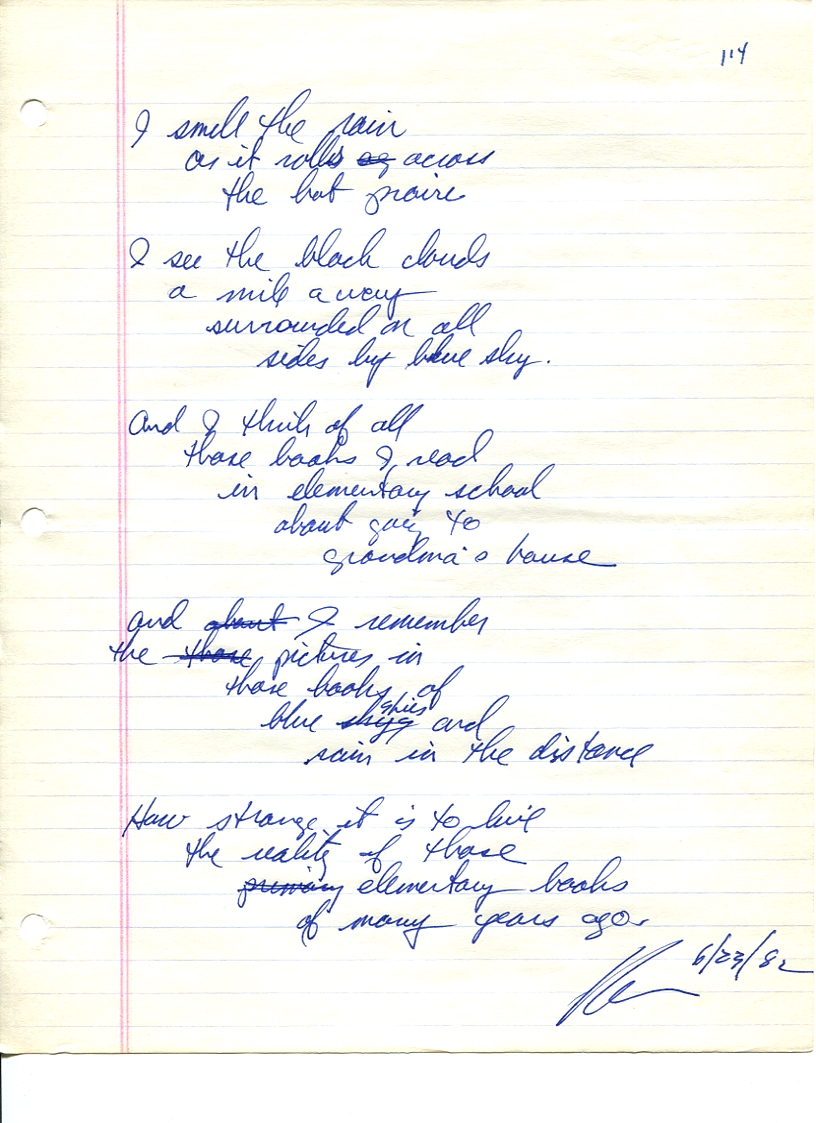 114
I smell the rain
as it rolls as across
the hot praire
I see the black clouds
a mile away
surrounded on all
sides by blue sky.
And I think of all
those books I read
in elementary school
about going to
grandma's house
and about I remember
the those pictures in
those books of
skies
blue and
rain in the distance
How strange it is to live
the reality of those
primary elementary books
of many years ago.
6/23/82